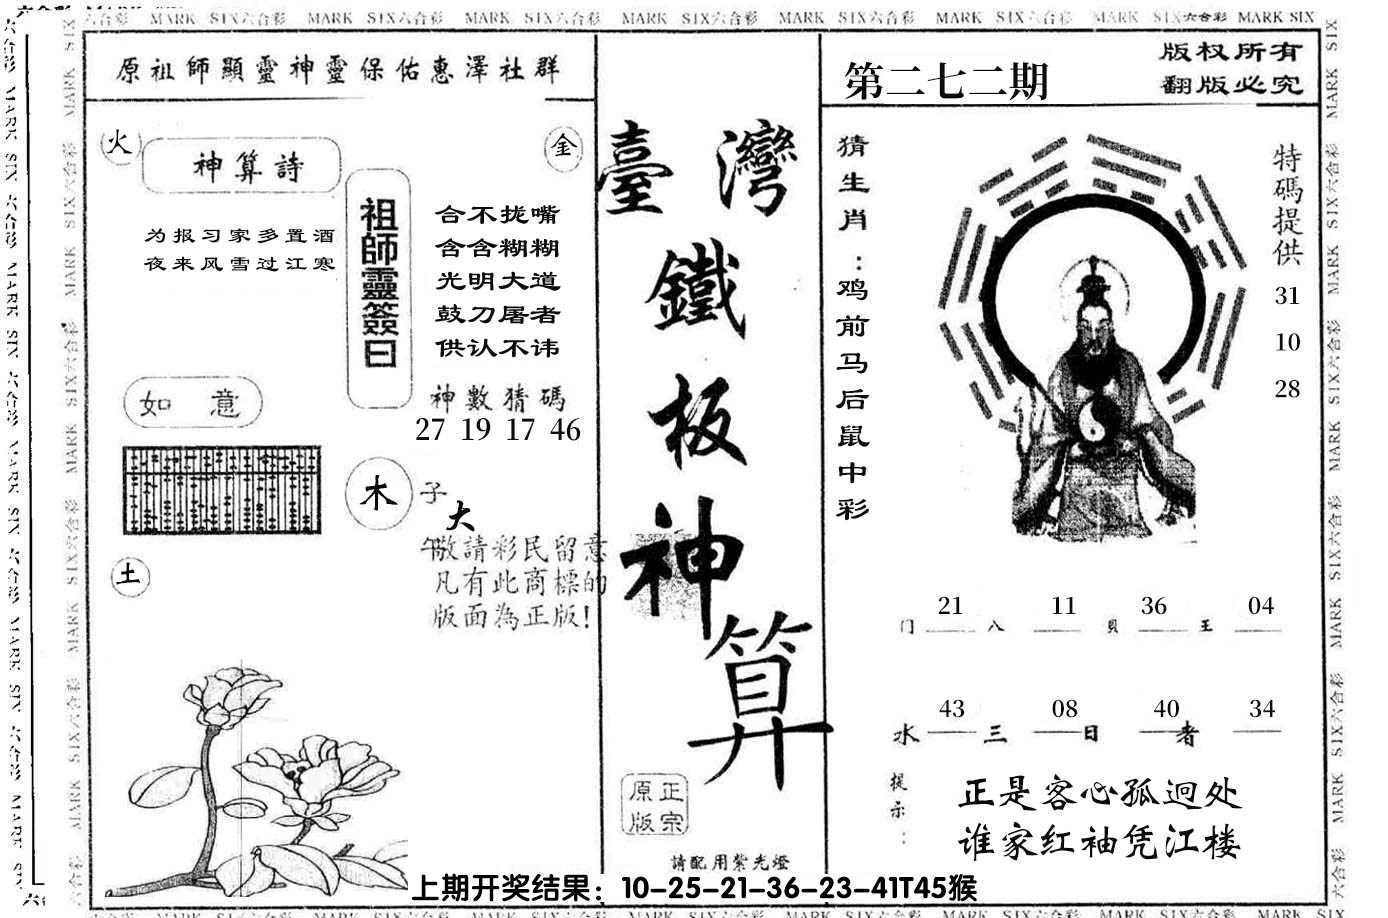 六合彩 MARK SIX六合彩 MARK SIX六合彩 MARK SIX六合彩 MARK SIX六合彩 MARK SIX六合彩 MARK SIX六合彩 MARK SIX六合彩 MARK SIX
原祖師顯靈神靈保佑惠澤社群
火
金
神算詩
为报习家多置酒
夜来风雪过江寒
祖師靈簽曰
合不拢嘴
含含糊糊
光明大道
鼓刀屠者
供认不讳
神數猜碼
27 19 17 46
如 意
木
子
大
午
敬請彩民留意
凡有此商標的
版面為正版!
土
臺灣
鐵
板
神
算
正宗
原版
請配用紫光燈
第二七二期
版权所有
翻版必究
猜生肖:鸡前马后鼠中彩
特碼提供
31
10
28
21 11 36 04
门 八 貝 王
43 08 40 34
水 三 日 者
提示:
正是客心孤迥处
谁家红袖凭江楼
上期开奖结果：10-25-21-36-23-41T45猴